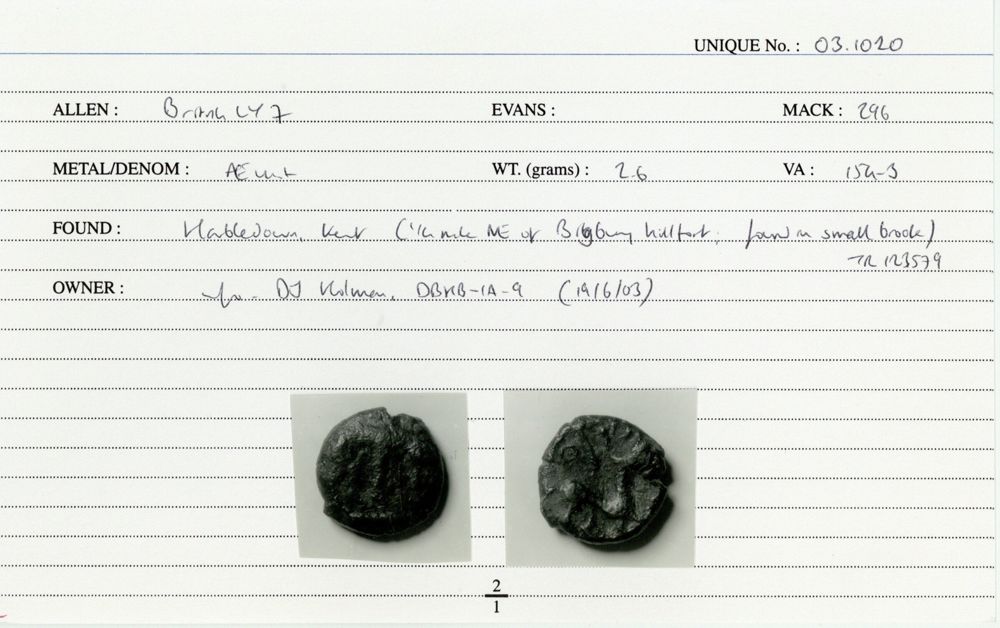 UNIQUE No. : 03.1020
ALLEN : British LY7 EVANS : MACK : 296
METAL/DENOM : Æ unit WT. (grams) : 2.6 VA : 154-3
FOUND : Harbledown, Kent (1/4 mile NE of Bigbury hillfort; found in small brook)
TR 123579
OWNER : DJ Holman, DBHB-IA-9 (19/6/03)
2
1